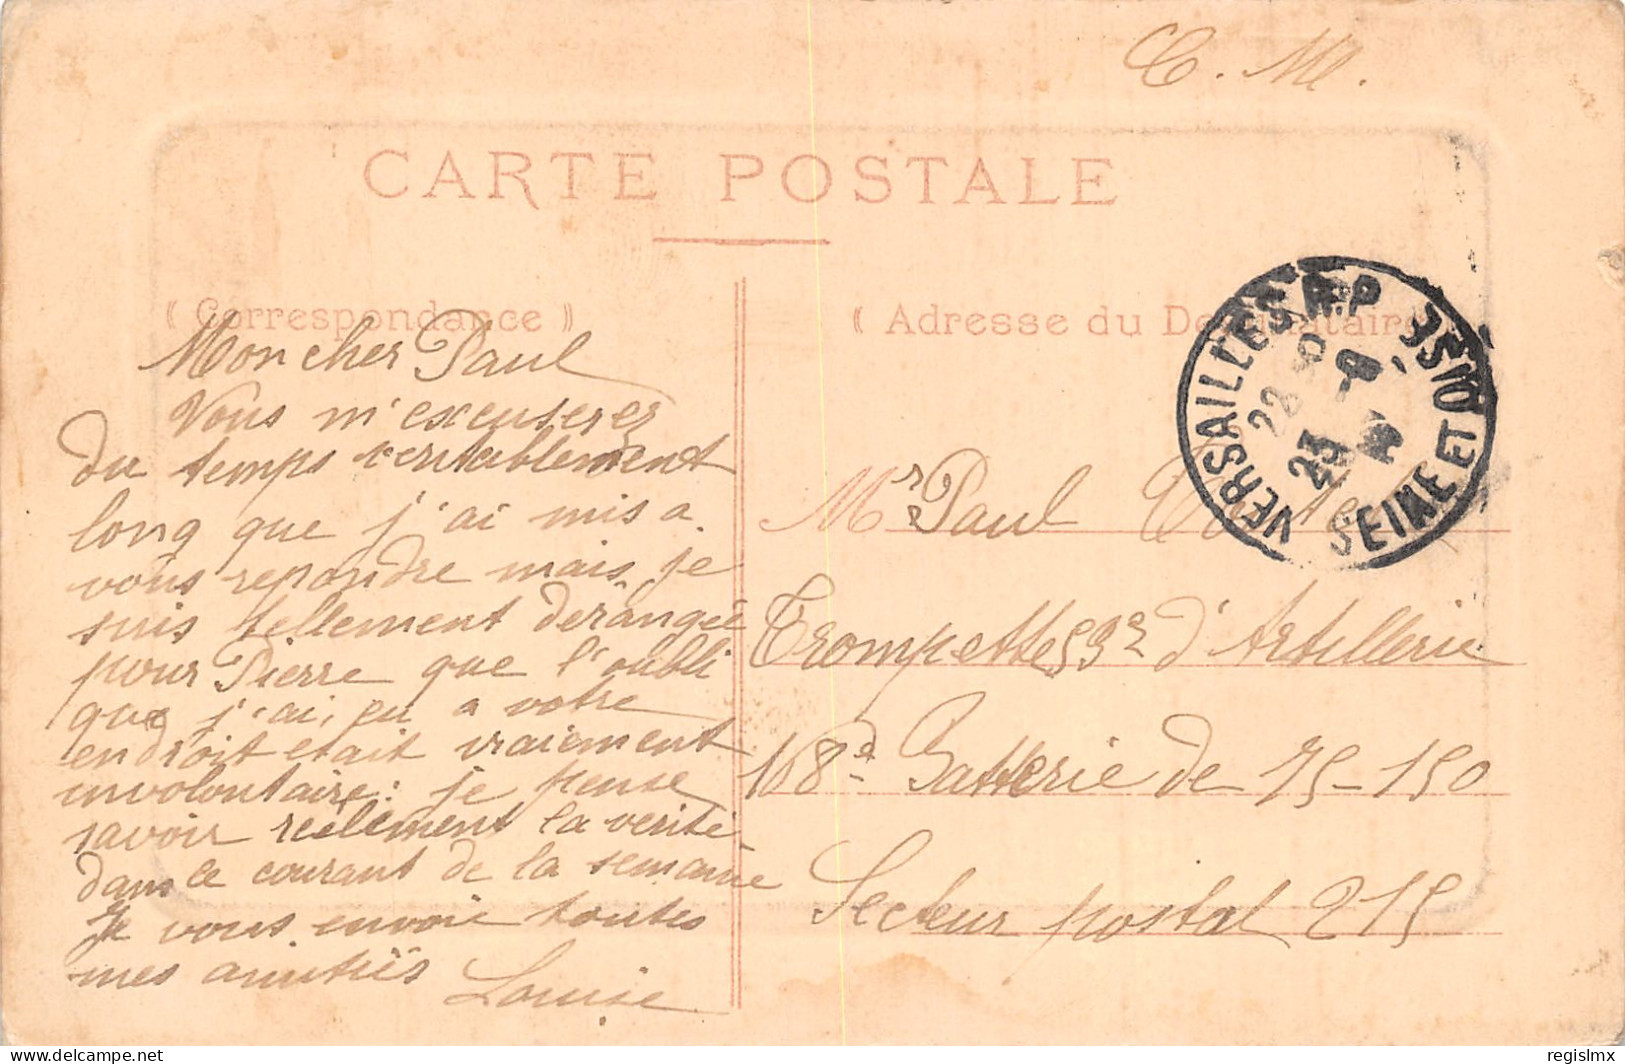 C. M.
CARTE POSTALE
« Correspondance »
« Adresse du Destinataire
Mon cher Paul
Vous m'excuserez
du temps veritablement
long que j'ai mis a
vous repondre mais je
suis tellement dérangée
pour Pierre que l'oubli
que j'ai eu a votre
endroit etait vraiement
involontaire: je pense
savoir reelement la verité
dans le courant de la semaine
Je vous envoie toutes
mes amitiés
Louise
VERSAILLES R.P SEINE ET OISE
22
23
Mr Paul
Trompette 53e d'Artillerie
168e Batterie de 75-150
Secteur postal 215
delcampe.net
regislmx